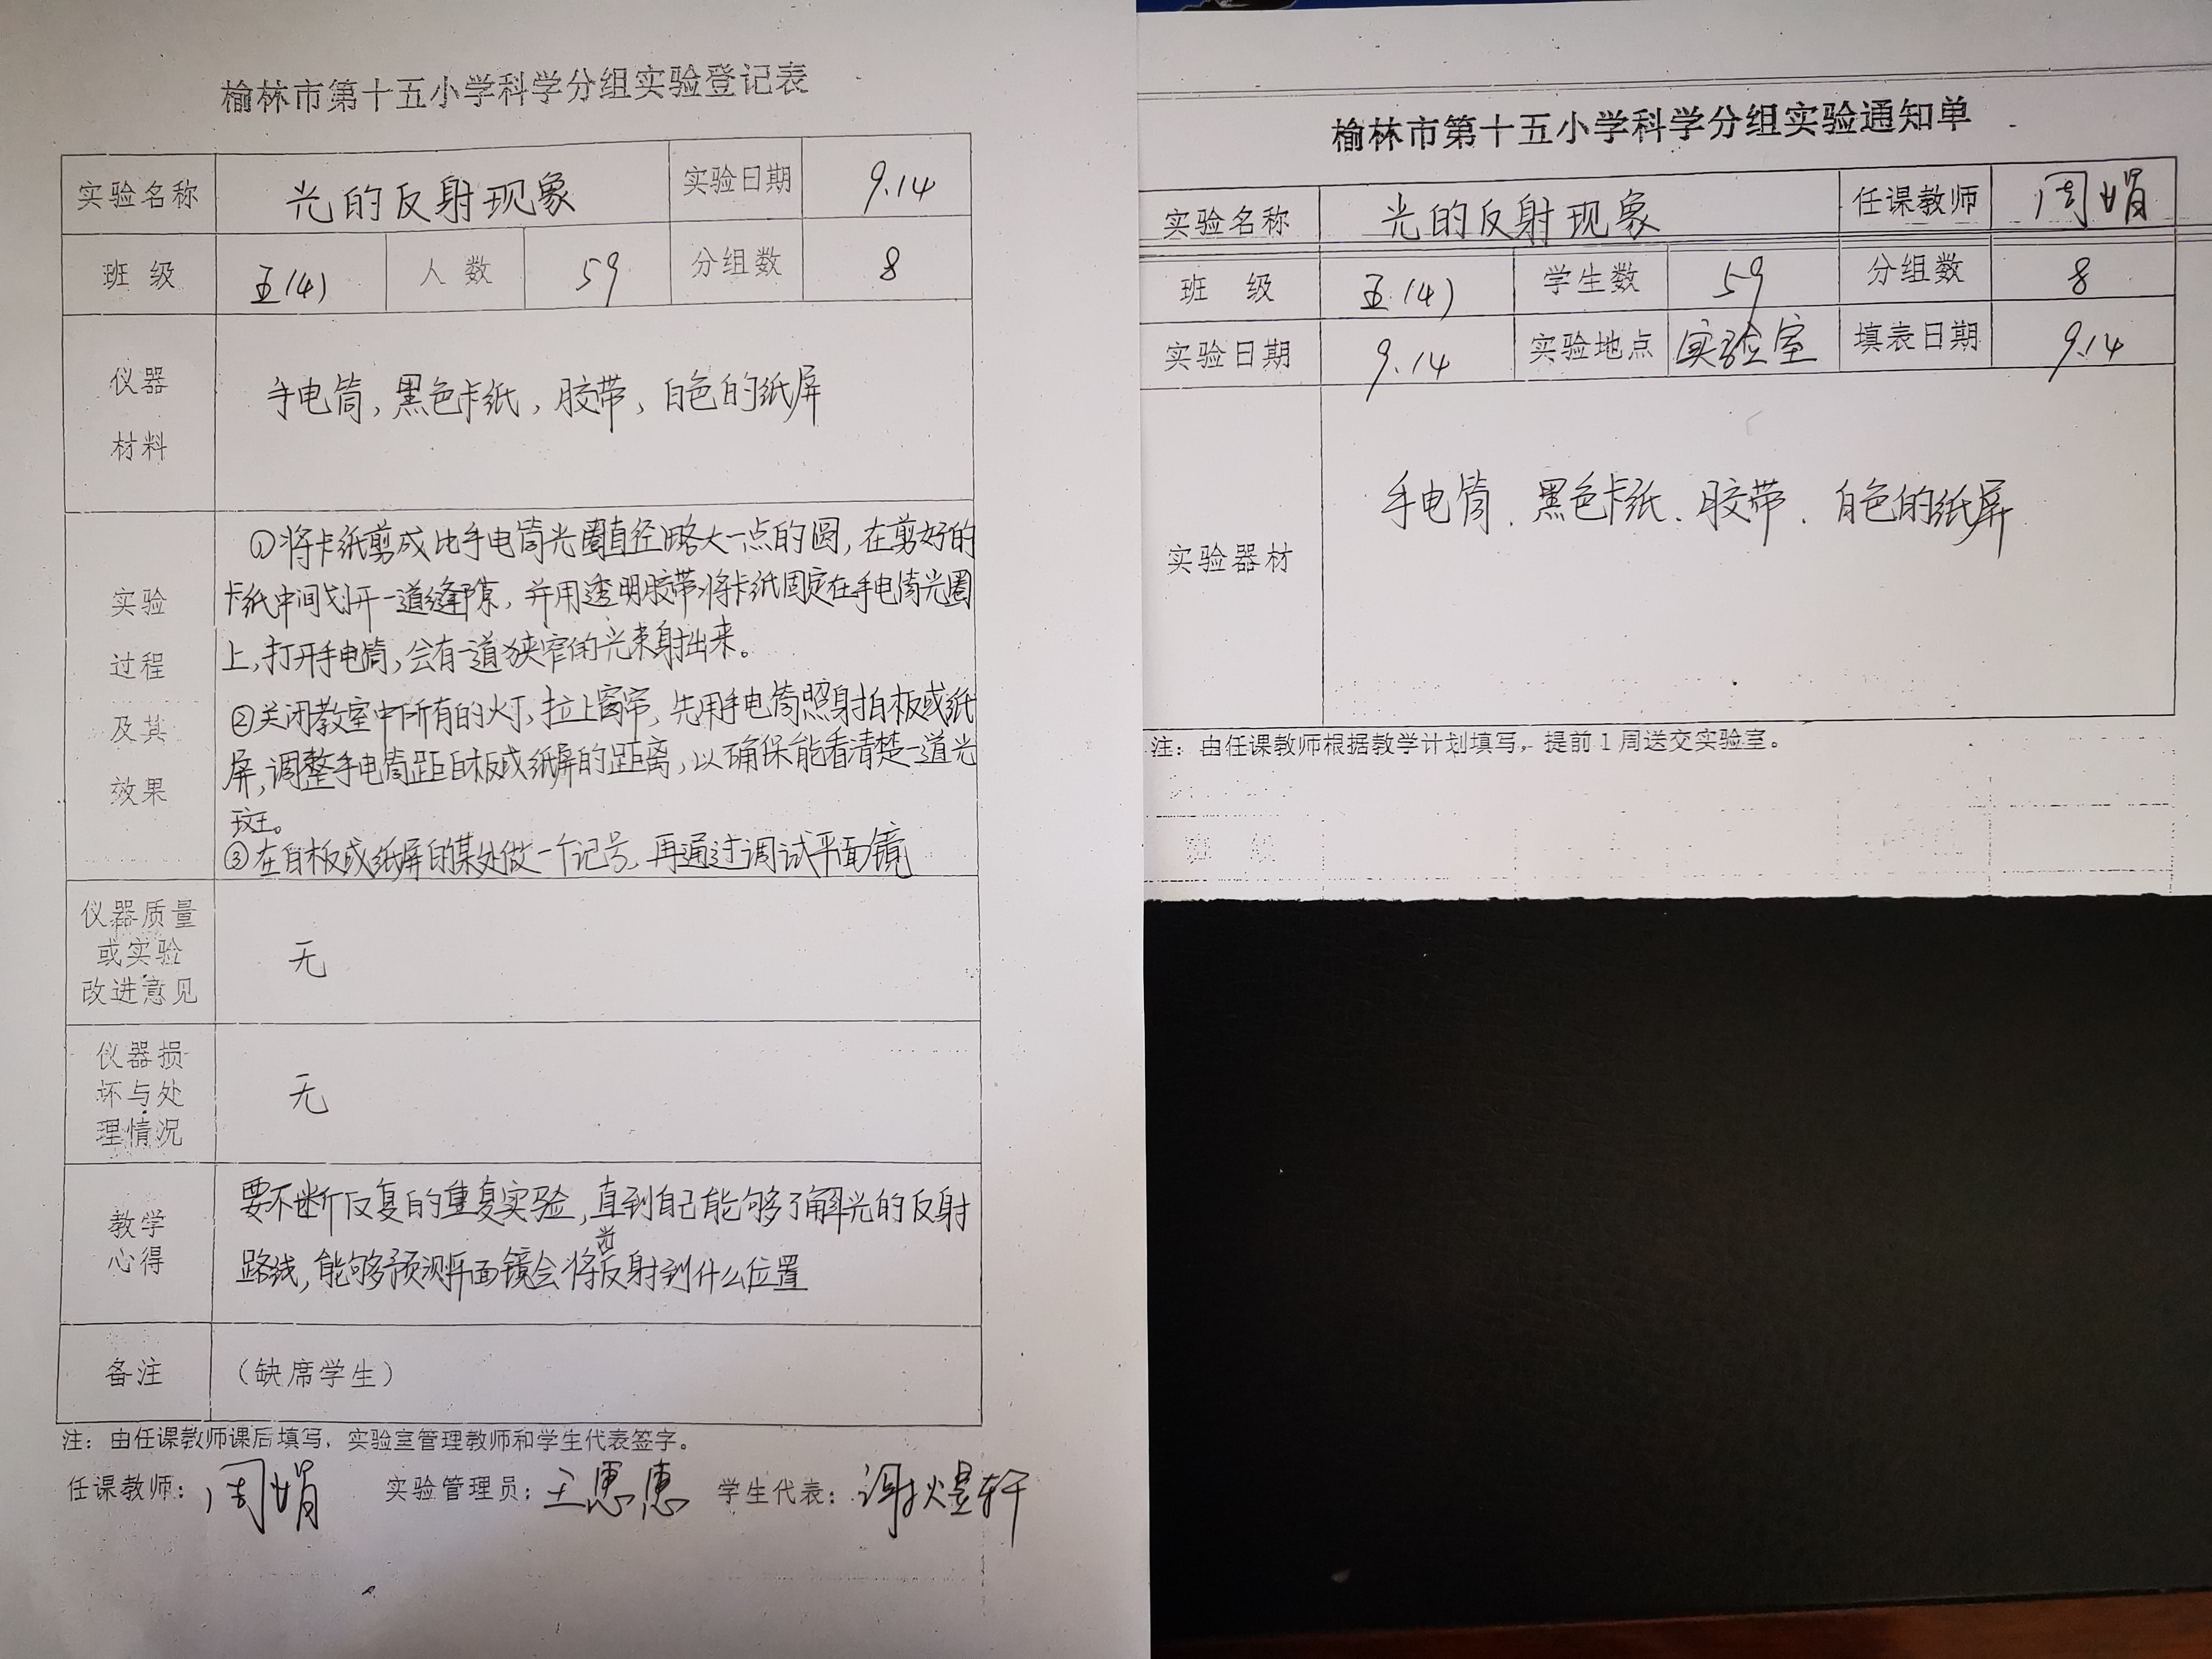 榆林市第十五小学科学分组实验登记表
实验名称 光的反射现象 实验日期 9.14
班 级 五(4) 人 数 59 分组数 8
仪器
材料
手电筒,黑色卡纸,胶带、白色的纸屏
实验
过程
及其
效果
①将卡纸剪成比手电筒光圈直径略大一点的圆,在剪好的
卡纸中间划开一道缝隙,并用透明胶带将卡纸固定在手电筒光圈
上,打开手电筒,会有一道狭窄的光束射出来。
②关闭教室中所有的火灯,拉上窗帘,先用手电筒照射拍板或纸
屏,调整手电筒距白板或纸屏的距离,以确保能看清楚一道光
斑。
③在白板或纸屏的某处做一个记号,再通过调试平面镜
仪器质量
或实验
改进意见
无
仪器损
坏与处
理情况
无
教学
心得
要不断反复的重复实验,直到自己能够了解光的反射
路线,能够预测平面镜会将光反射到什么位置
备注 (缺席学生)
注:由任课教师课后填写,实验室管理教师和学生代表签字。
任课教师:周娟 实验管理员:王惠惠 学生代表:谢煜轩
榆林市第十五小学科学分组实验通知单
实验名称 光的反射现象 任课教师 周娟
班 级 五(4) 学生数 59 分组数 8
实验日期 9.14 实验地点 实验室 填表日期 9.14
实验器材
手电筒、黑色卡纸、胶带、白色的纸屏
注:由任课教师根据教学计划填写,提前1周送交实验室。
班 级